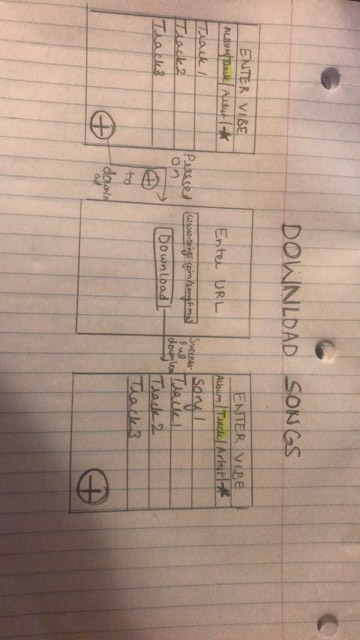 DOWNLOAD SONGS
ENTER VIBE
ALBUM/Track/Artist/★
Track 1
Track 2
Track 3
+
Pressed
on
+
to
Enter URL
Download
Success
ful
download
ENTER VIBE
Album/Track/Artist/★
song 1
Track 1
Track 2
Track 3
+